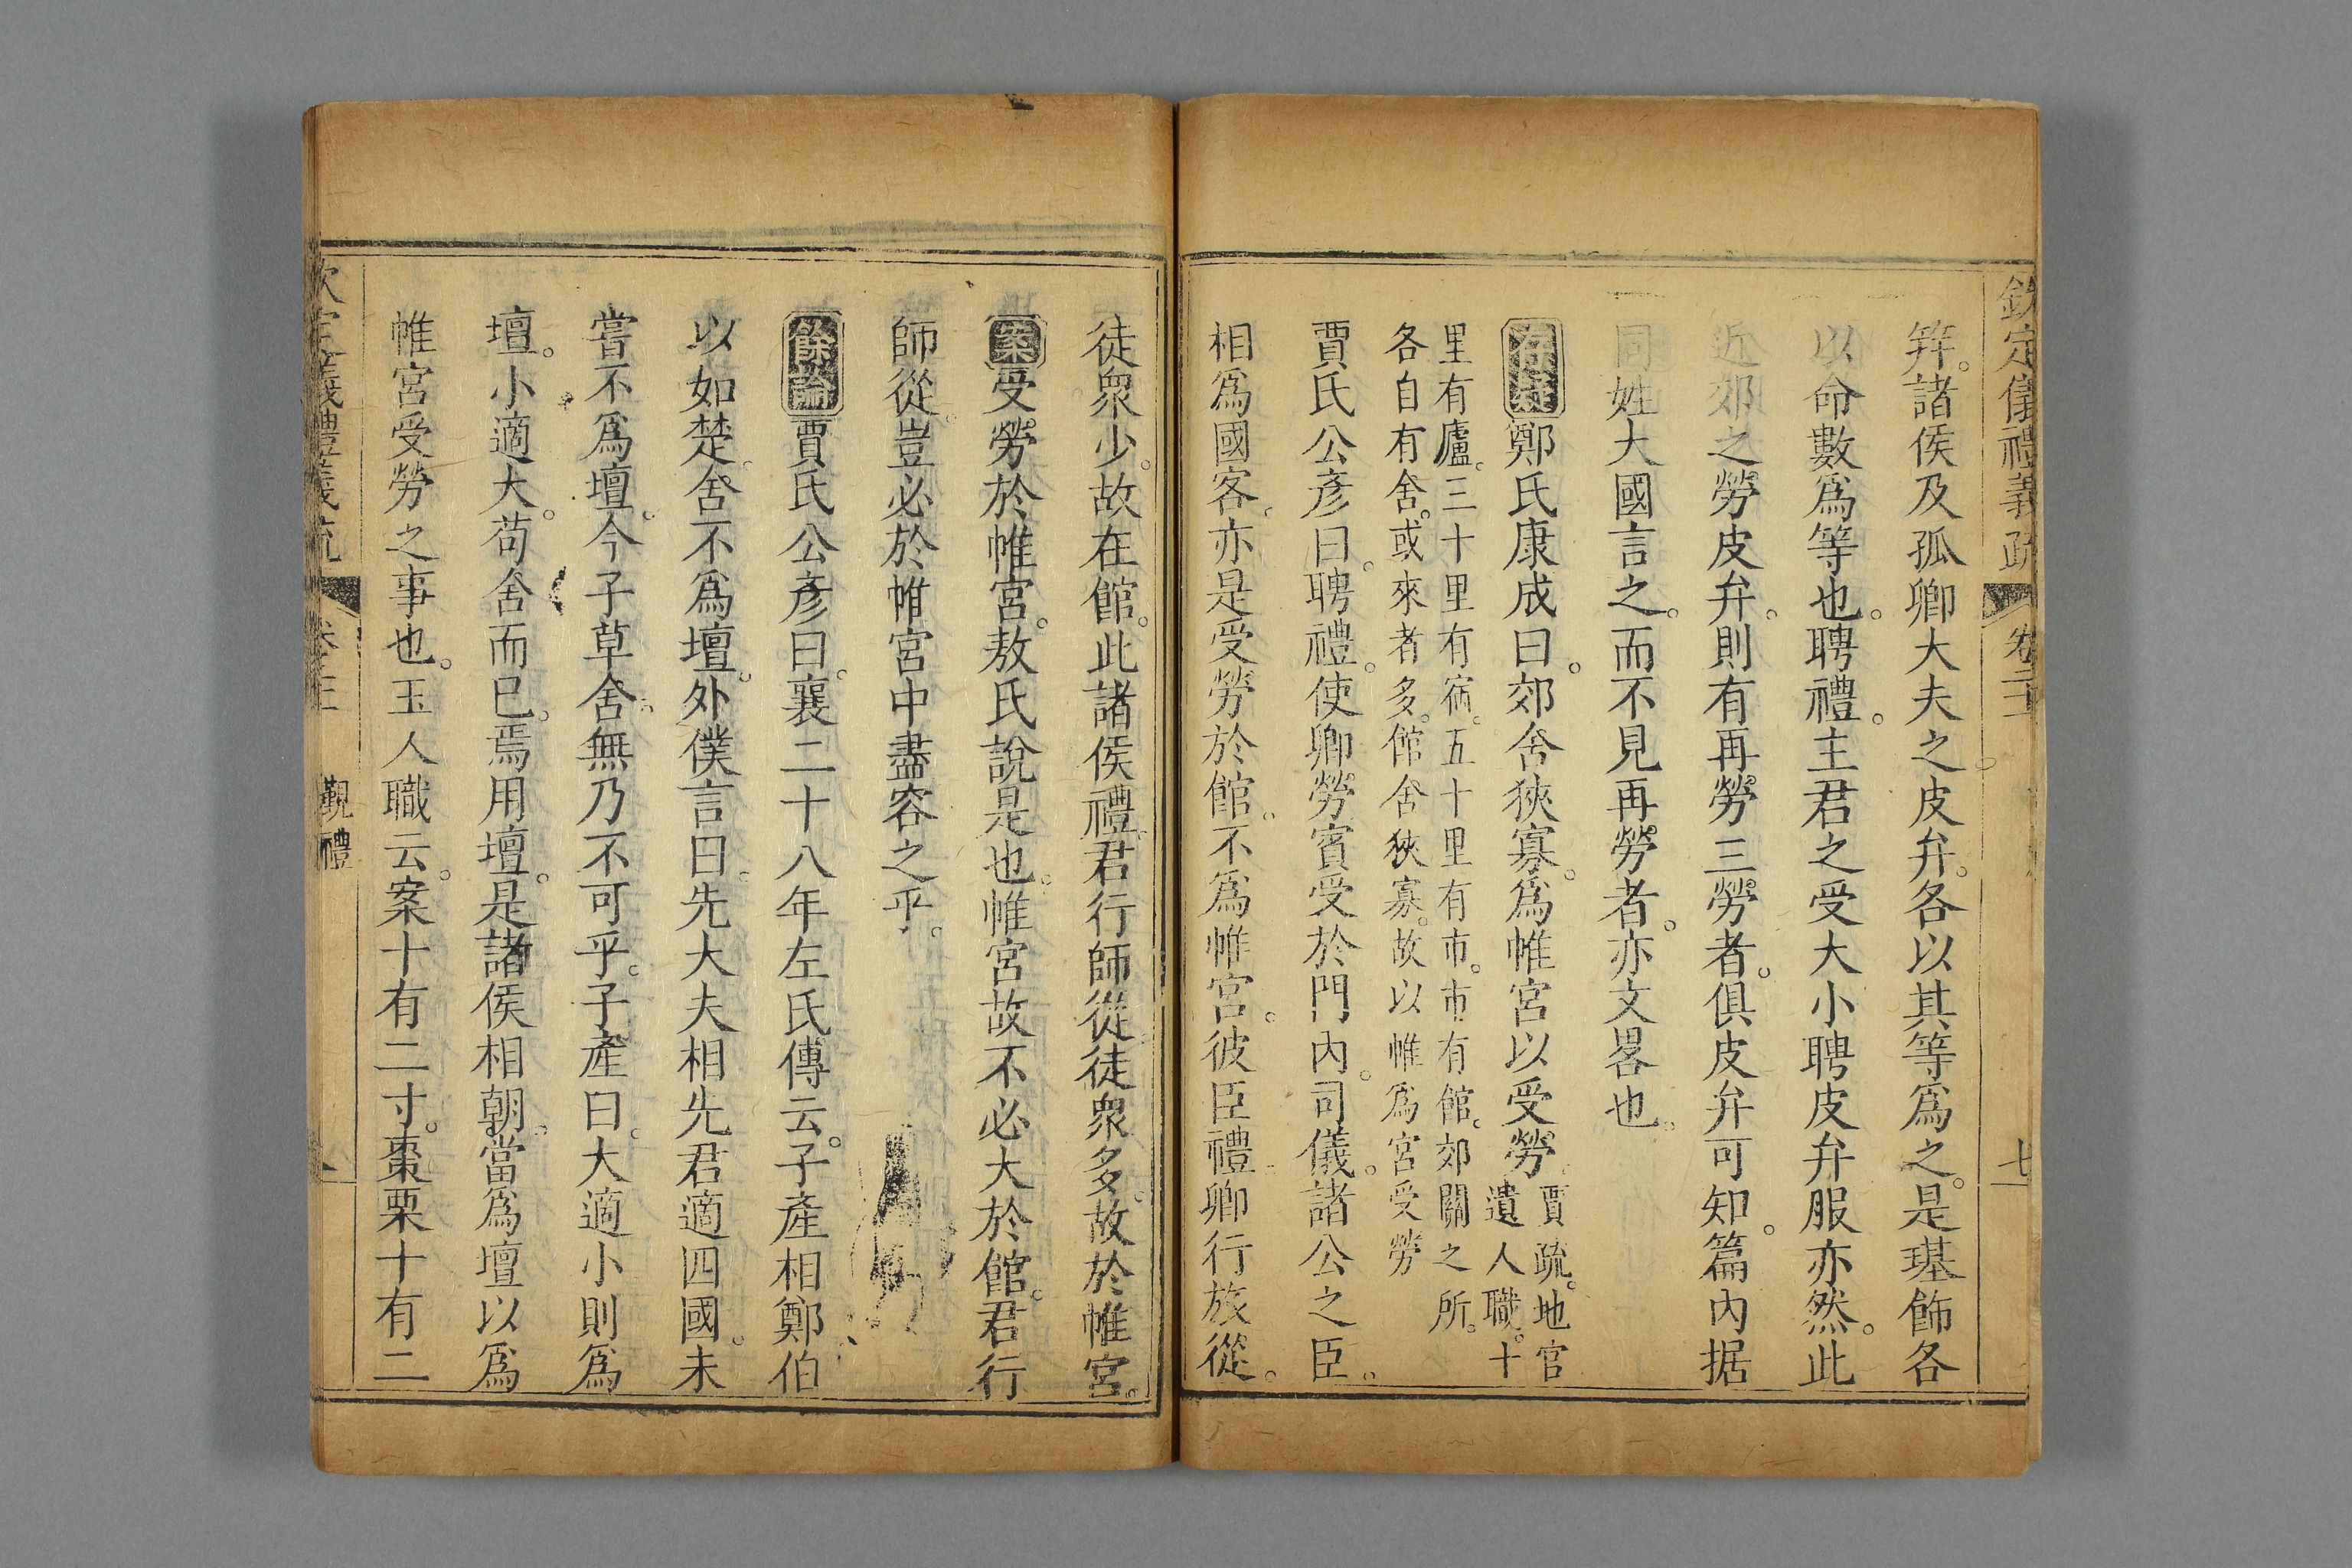 欽定儀禮義疏　卷二十　七
弁。諸侯及孤卿大夫之皮弁。各以其等爲之。是璂飾各
以命數爲等也。聘禮。主君之受大小聘皮弁服亦然。此
近郊之勞皮弁。則有再勞三勞者。俱皮弁可知。篇內据
同姓大國言之。而不見再勞者。亦文畧也。
存疑鄭氏康成曰。郊舍狹寡。爲帷宮以受勞。賈疏。地官
遺人職。十
里有廬。三十里有宿。五十里有市。市有館。郊關之所。
各自有舍。或來者多。館舍狹寡。故以帷爲宮受勞
賈氏公彥曰。聘禮。使卿勞賓受於門內。司儀。諸公之臣。
相爲國客。亦是受勞於館。不爲帷宮。彼臣禮卿行旅從。
徒衆少。故在館。此諸侯禮。君行師從。徒衆多。故於帷宮。
案受勞於帷宮。敖氏說是也。帷宮故不必大於館。君行
師從。豈必於帷宮中盡容之乎。
餘論賈氏公彥曰。襄二十八年左氏傳云。子產相鄭伯
以如楚。舍不爲壇。外僕言曰。先大夫相先君適四國。未
嘗不爲壇。今子草舍。無乃不可乎。子產曰。大適小則爲
壇。小適大。苟舍而已。焉用壇。是諸侯相朝。當爲壇以爲
帷宮受勞之事也。玉人職云。案十有二寸。棗栗十有二
欽定儀禮義疏　卷二　覲禮